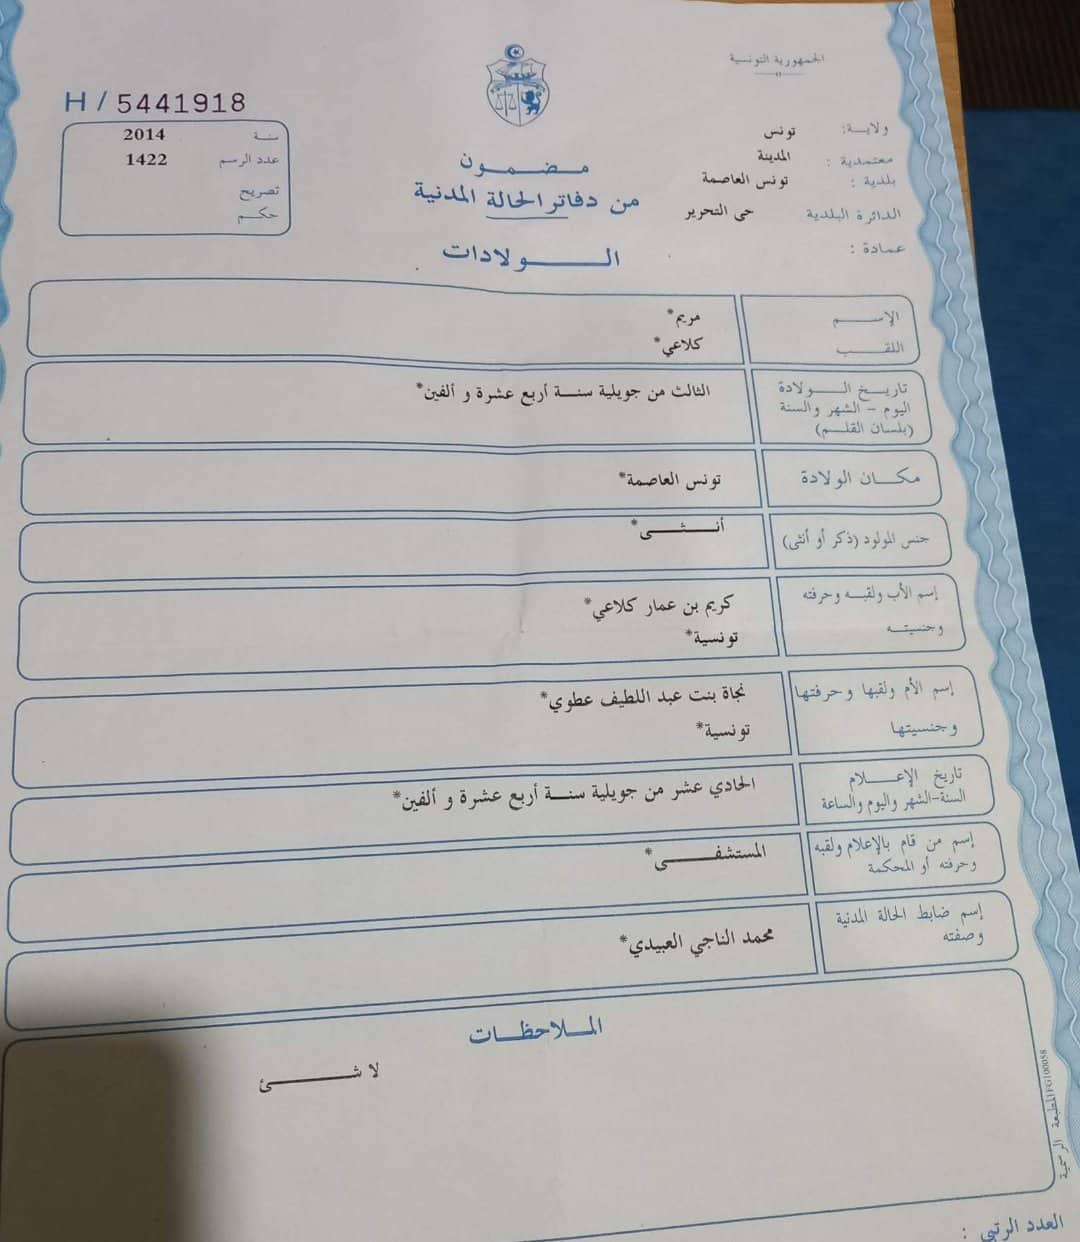 الجمهورية التونسية
H / 5441918
سنة 2014
عدد الرسم 1422
تصريح
حكم
ولاية: تونس
معتمدية : المدينة
بلدية : تونس العاصمة
الدائرة البلدية حي التحرير
عمادة :
مضمون
من دفاتر الحالة المدنية
الولادات
الإسم مريم*
اللقب كلاعي*
تاريخ الولادة
اليوم - الشهر والسنة
(بلسان القلم)
الثالث من جويلية سنة أربع عشرة و ألفين*
مكان الولادة تونس العاصمة*
جنس المولود (ذكر أو أنثى) أنثى*
إسم الأب ولقبه وحرفته كريم بن عمار كلاعي*
وجنسيته تونسية*
إسم الأم ولقبها وحرفتها نجاة بنت عبد اللطيف عطوي*
وجنسيتها تونسية*
تاريخ الإعلام
السنة-الشهر واليوم والساعة
الحادي عشر من جويلية سنة أربع عشرة و ألفين*
إسم من قام بالإعلام ولقبه
وحرفته أو المحكمة
المستشفى*
إسم ضابط الحالة المدنية
وصفته
محمد الناجي العبيدي*
الملاحظات
لا شئ
المطبعة الرسمية FG100058
العدد الرتبي :